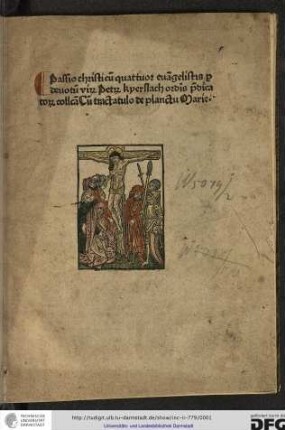 Passio christi cū quattuor euāgelistis ꝑ
deuotū virū Petrū kyerslach ordis p̄dica
torꝝ collcā Cū tractatulo de planctu Marie.
TECHNISCHE
UNIVERSITÄT
DARMSTADT
http://tudigit.ulb.tu-darmstadt.de/show/inc-ii-779/0001
Universitäts- und Landesbibliothek Darmstadt
gefördert durch die
DFG